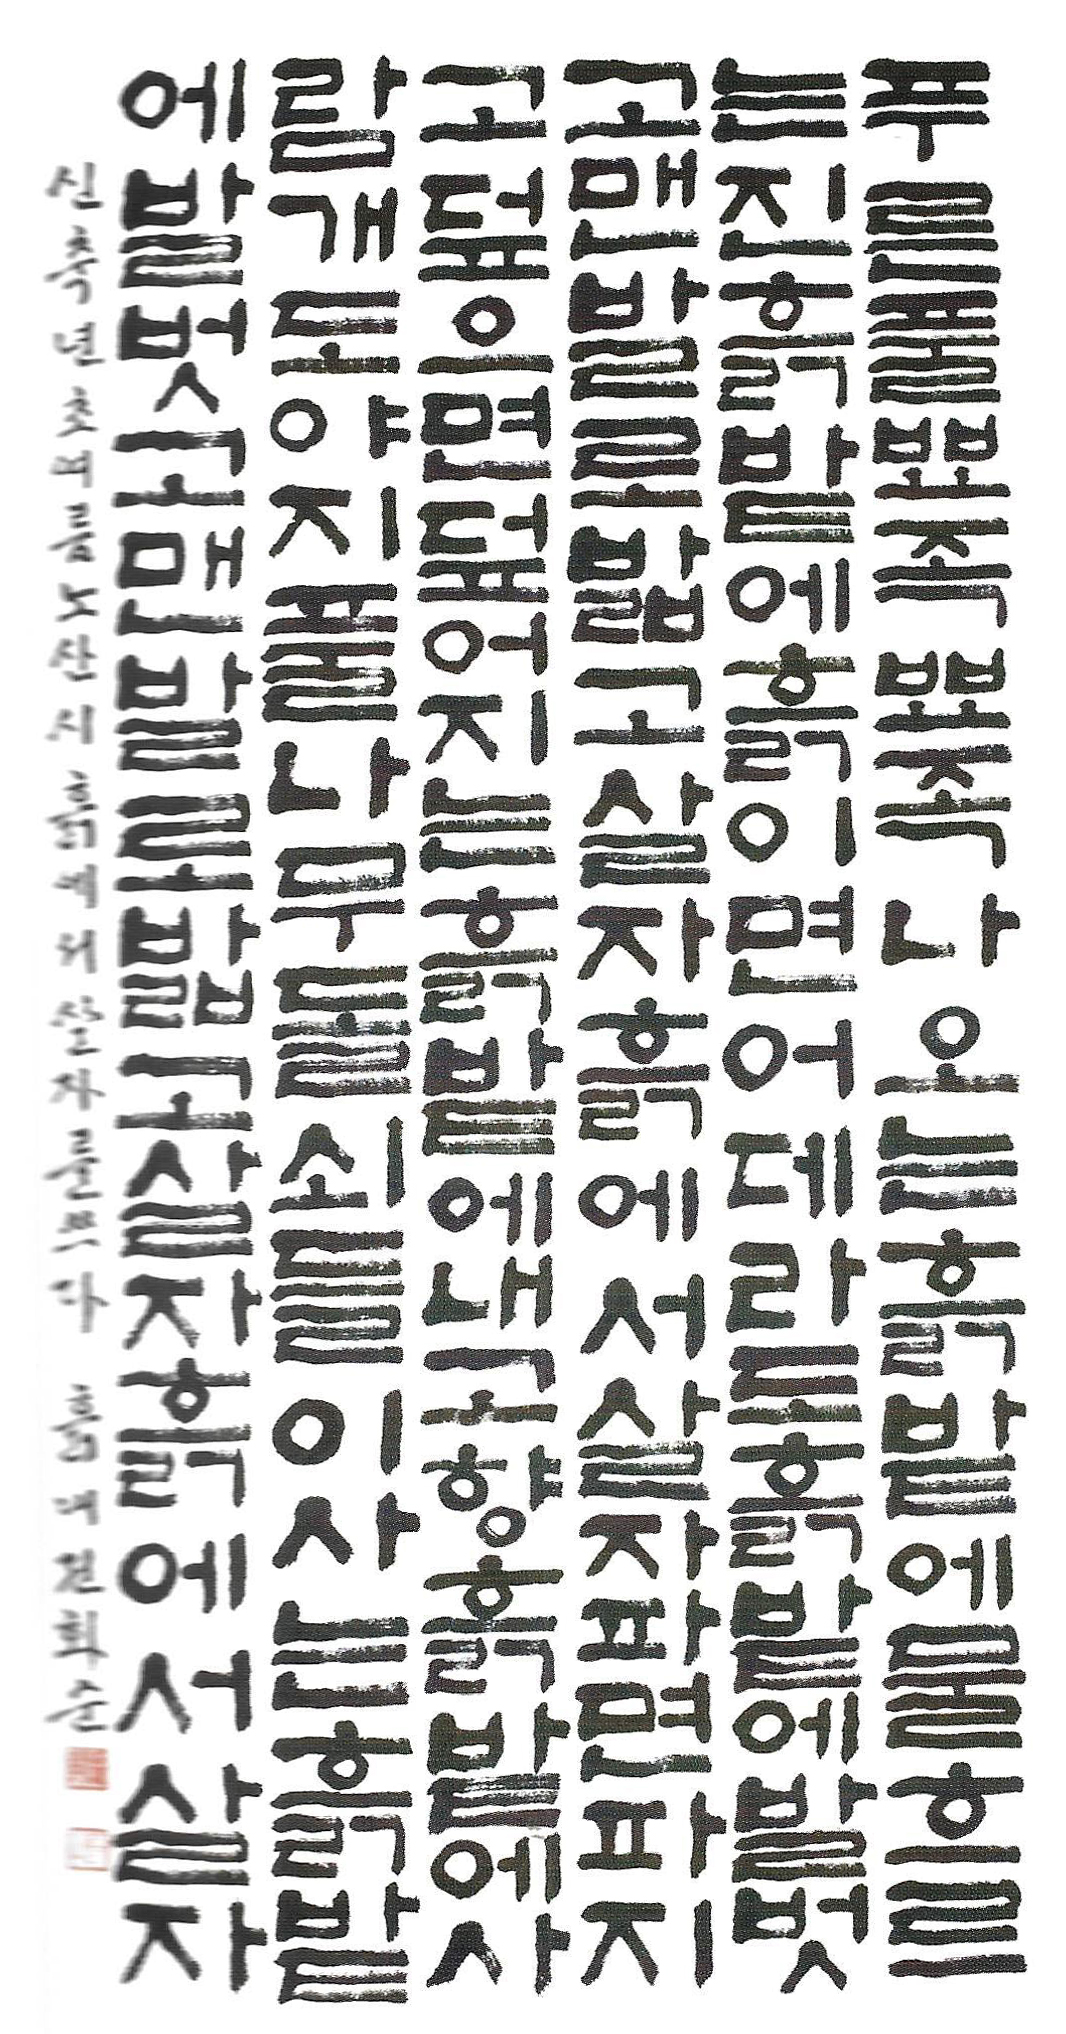 푸른풀뾰족뾰족나오는흙밭에물흐르
는진흙밭에흙이면어데라도흙밭에발벗
고맨발로밟고살자흙에서살자파면파지
고덮으면덮어지는흙밭에내고향흙밭에사
람개도야지풀나무돌쇠들이사는흙밭
에발벗고맨발로밟고살자흙에서살자
신축년초여름노산시흙에서살자를쓰다 흙내전희순